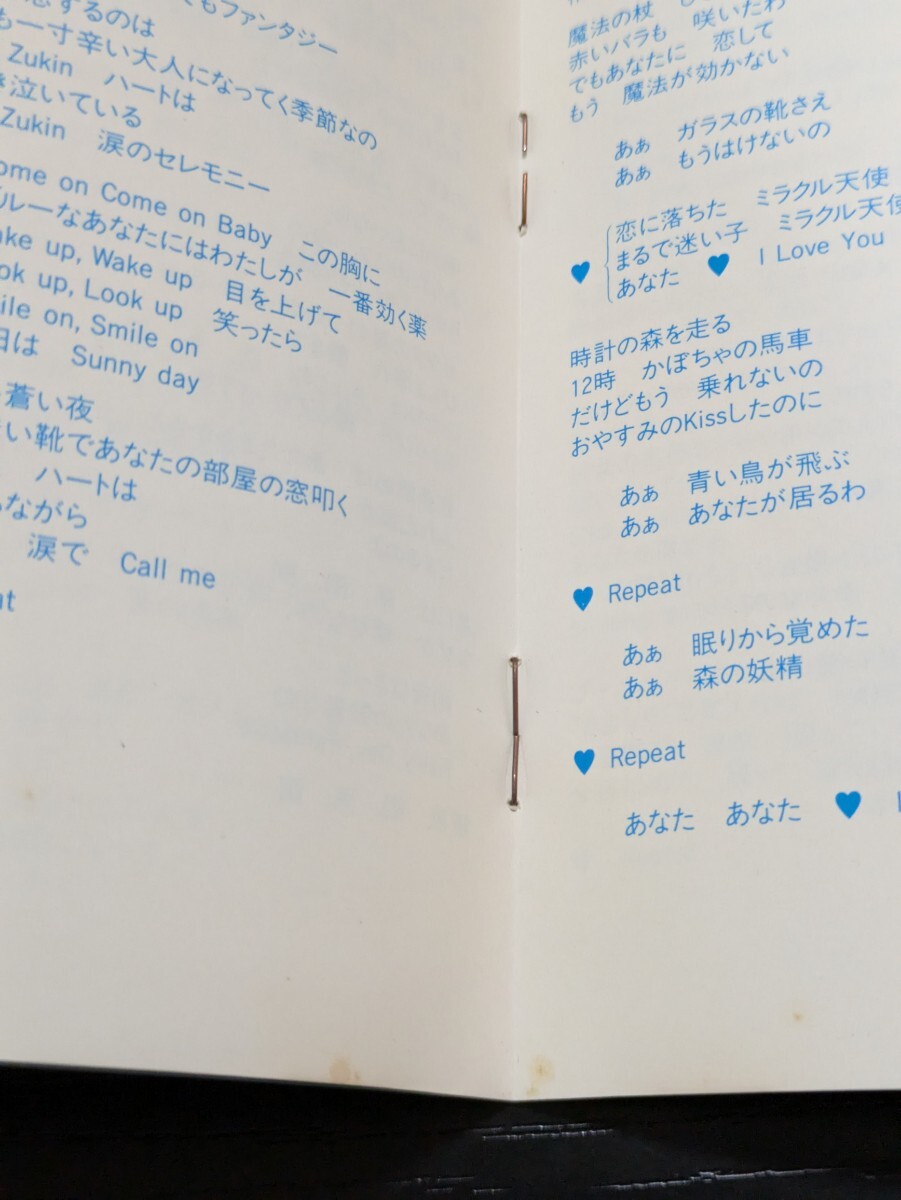 もファンタジー
するのは
も一寸辛い大人になってく季節なの
Zukin ハートは
泣いている
Zukin 涙のセレモニー
ome on Come on Baby この胸に
ブルーなあなたにはわたしが 一番効く薬
ake up, Wake up 目を上げて
ok up, Look up 笑ったら
ile on, Smile on
日は Sunny day
蒼い夜
い靴であなたの部屋の窓叩く
ハートは
ながら
涙で Call me
at
魔法の杖
赤いバラも 咲いたわ
でもあなたに 恋して
もう 魔法が効かない
あぁ ガラスの靴さえ
あぁ もうはけないの
恋に落ちた ミラクル天使
まるで迷い子 ミラクル天使
♥ あなた ♥ I Love You
時計の森を走る
12時 かぼちゃの馬車
だけどもう 乗れないの
おやすみのKissしたのに
あぁ 青い鳥が飛ぶ
あぁ あなたが居るわ
♥ Repeat
あぁ 眠りから覚めた
あぁ 森の妖精
♥ Repeat
あなた あなた ♥